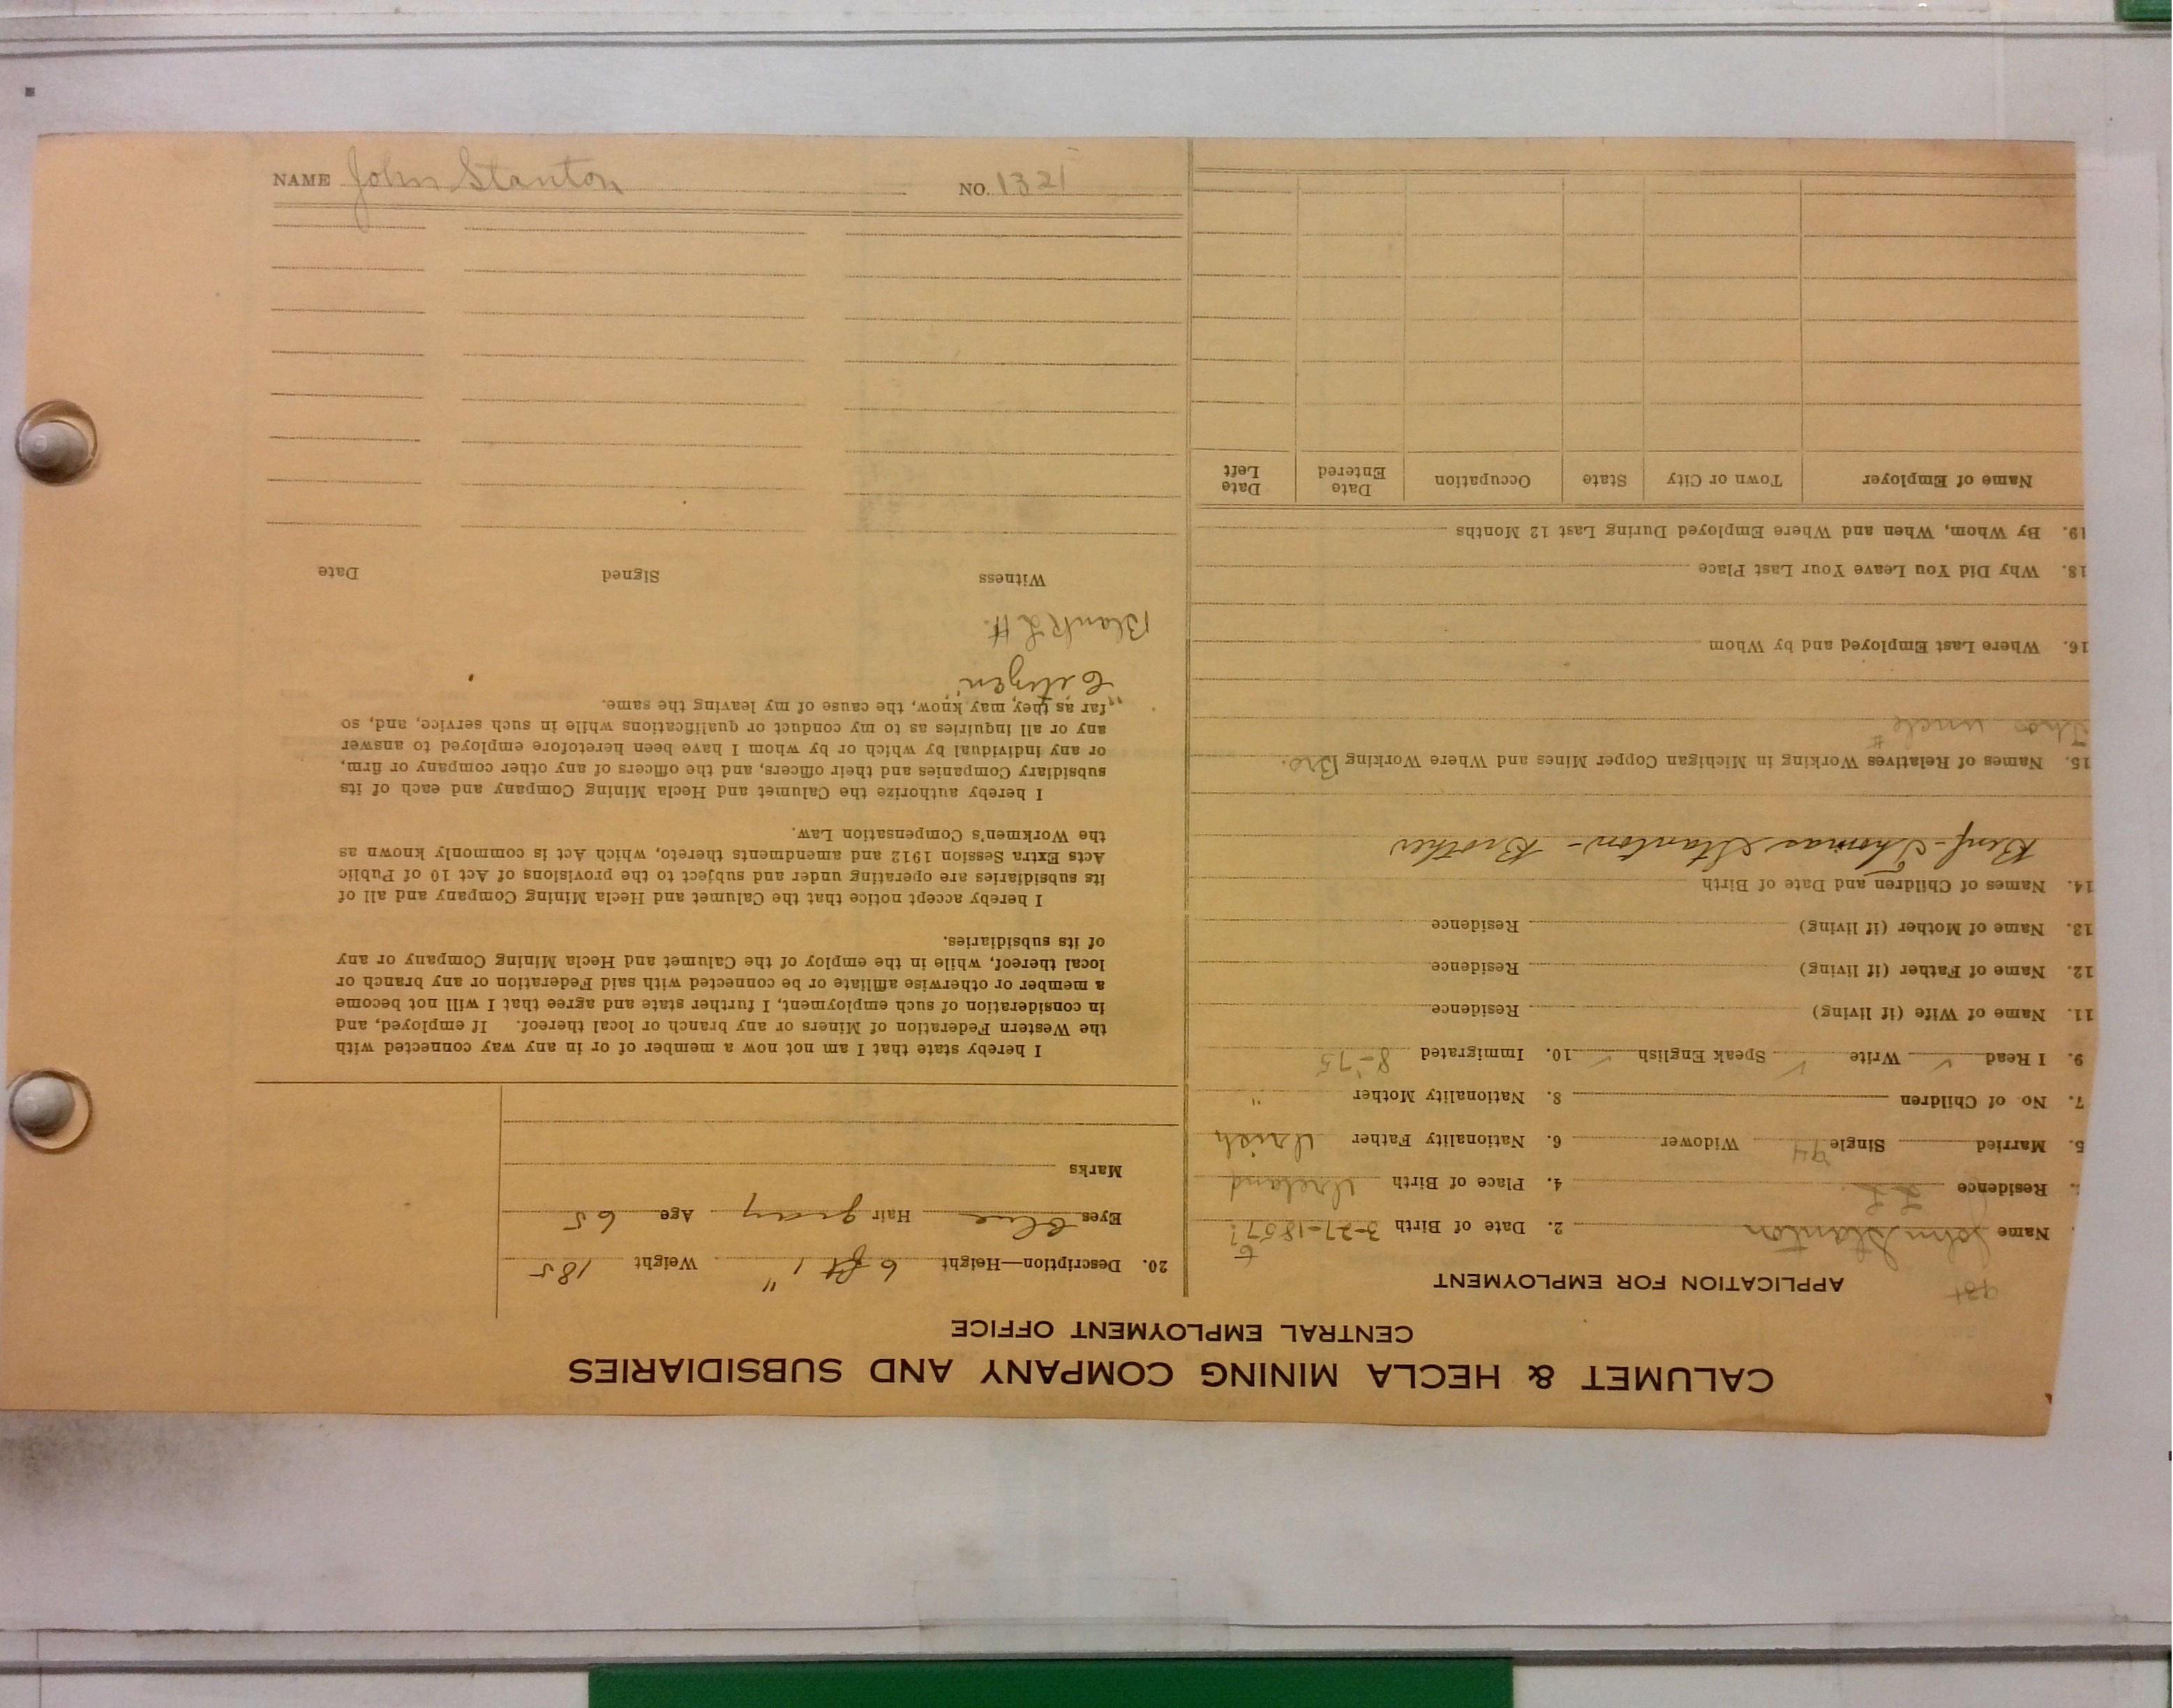 NAME John Stanton NO. 1321
CALUMET & HECLA MINING COMPANY AND SUBSIDIARIES
CENTRAL EMPLOYMENT OFFICE
APPLICATION FOR EMPLOYMENT
Name John Stanton 2. Date of Birth 3-27-1857?
Residence L.L. 4. Place of Birth Ireland
5. Married Single Widower 6. Nationality Father Irish
7. No. of Children 8. Nationality Mother "
9. I Read ✓ Write ✓ Speak English ✓ 10. Immigrated 8-'75
11. Name of Wife (if living) Residence
12. Name of Father (if living) Residence
13. Name of Mother (if living) Residence
14. Names of Children and Date of Birth
Benf-Thomas Stanton - Brother
15. Names of Relatives Working in Michigan Copper Mines and Where Working Bro.
Thos uncle
16. Where Last Employed and by Whom
18. Why Did You Leave Your Last Place
19. By Whom, When and Where Employed During Last 12 Months
Name of Employer Town or City State Occupation Date Entered Date Left
20. Description—Height 6 ft 1" Weight 185
Eyes Blue Hair gray Age 65
Marks
I hereby state that I am not now a member of or in any way connected with
the Western Federation of Miners or any branch or local thereof. If employed, and
in consideration of such employment, I further state and agree that I will not become
a member or otherwise affiliate or be connected with said Federation or any branch or
local thereof, while in the employ of the Calumet and Hecla Mining Company or any
of its subsidiaries.
I hereby accept notice that the Calumet and Hecla Mining Company and all of
its subsidiaries are operating under and subject to the provisions of Act 10 of Public
Acts Extra Session 1912 and amendments thereto, which Act is commonly known as
the Workmen's Compensation Law.
I hereby authorize the Calumet and Hecla Mining Company and each of its
subsidiary Companies and their officers, and the officers of any other company or firm,
or any individual by which or by whom I have been heretofore employed to answer
any or all inquiries as to my conduct or qualifications while in such service, and, so
far as they may know, the cause of my leaving the same.
"Citizen"
Blank L H.
Witness Signed Date